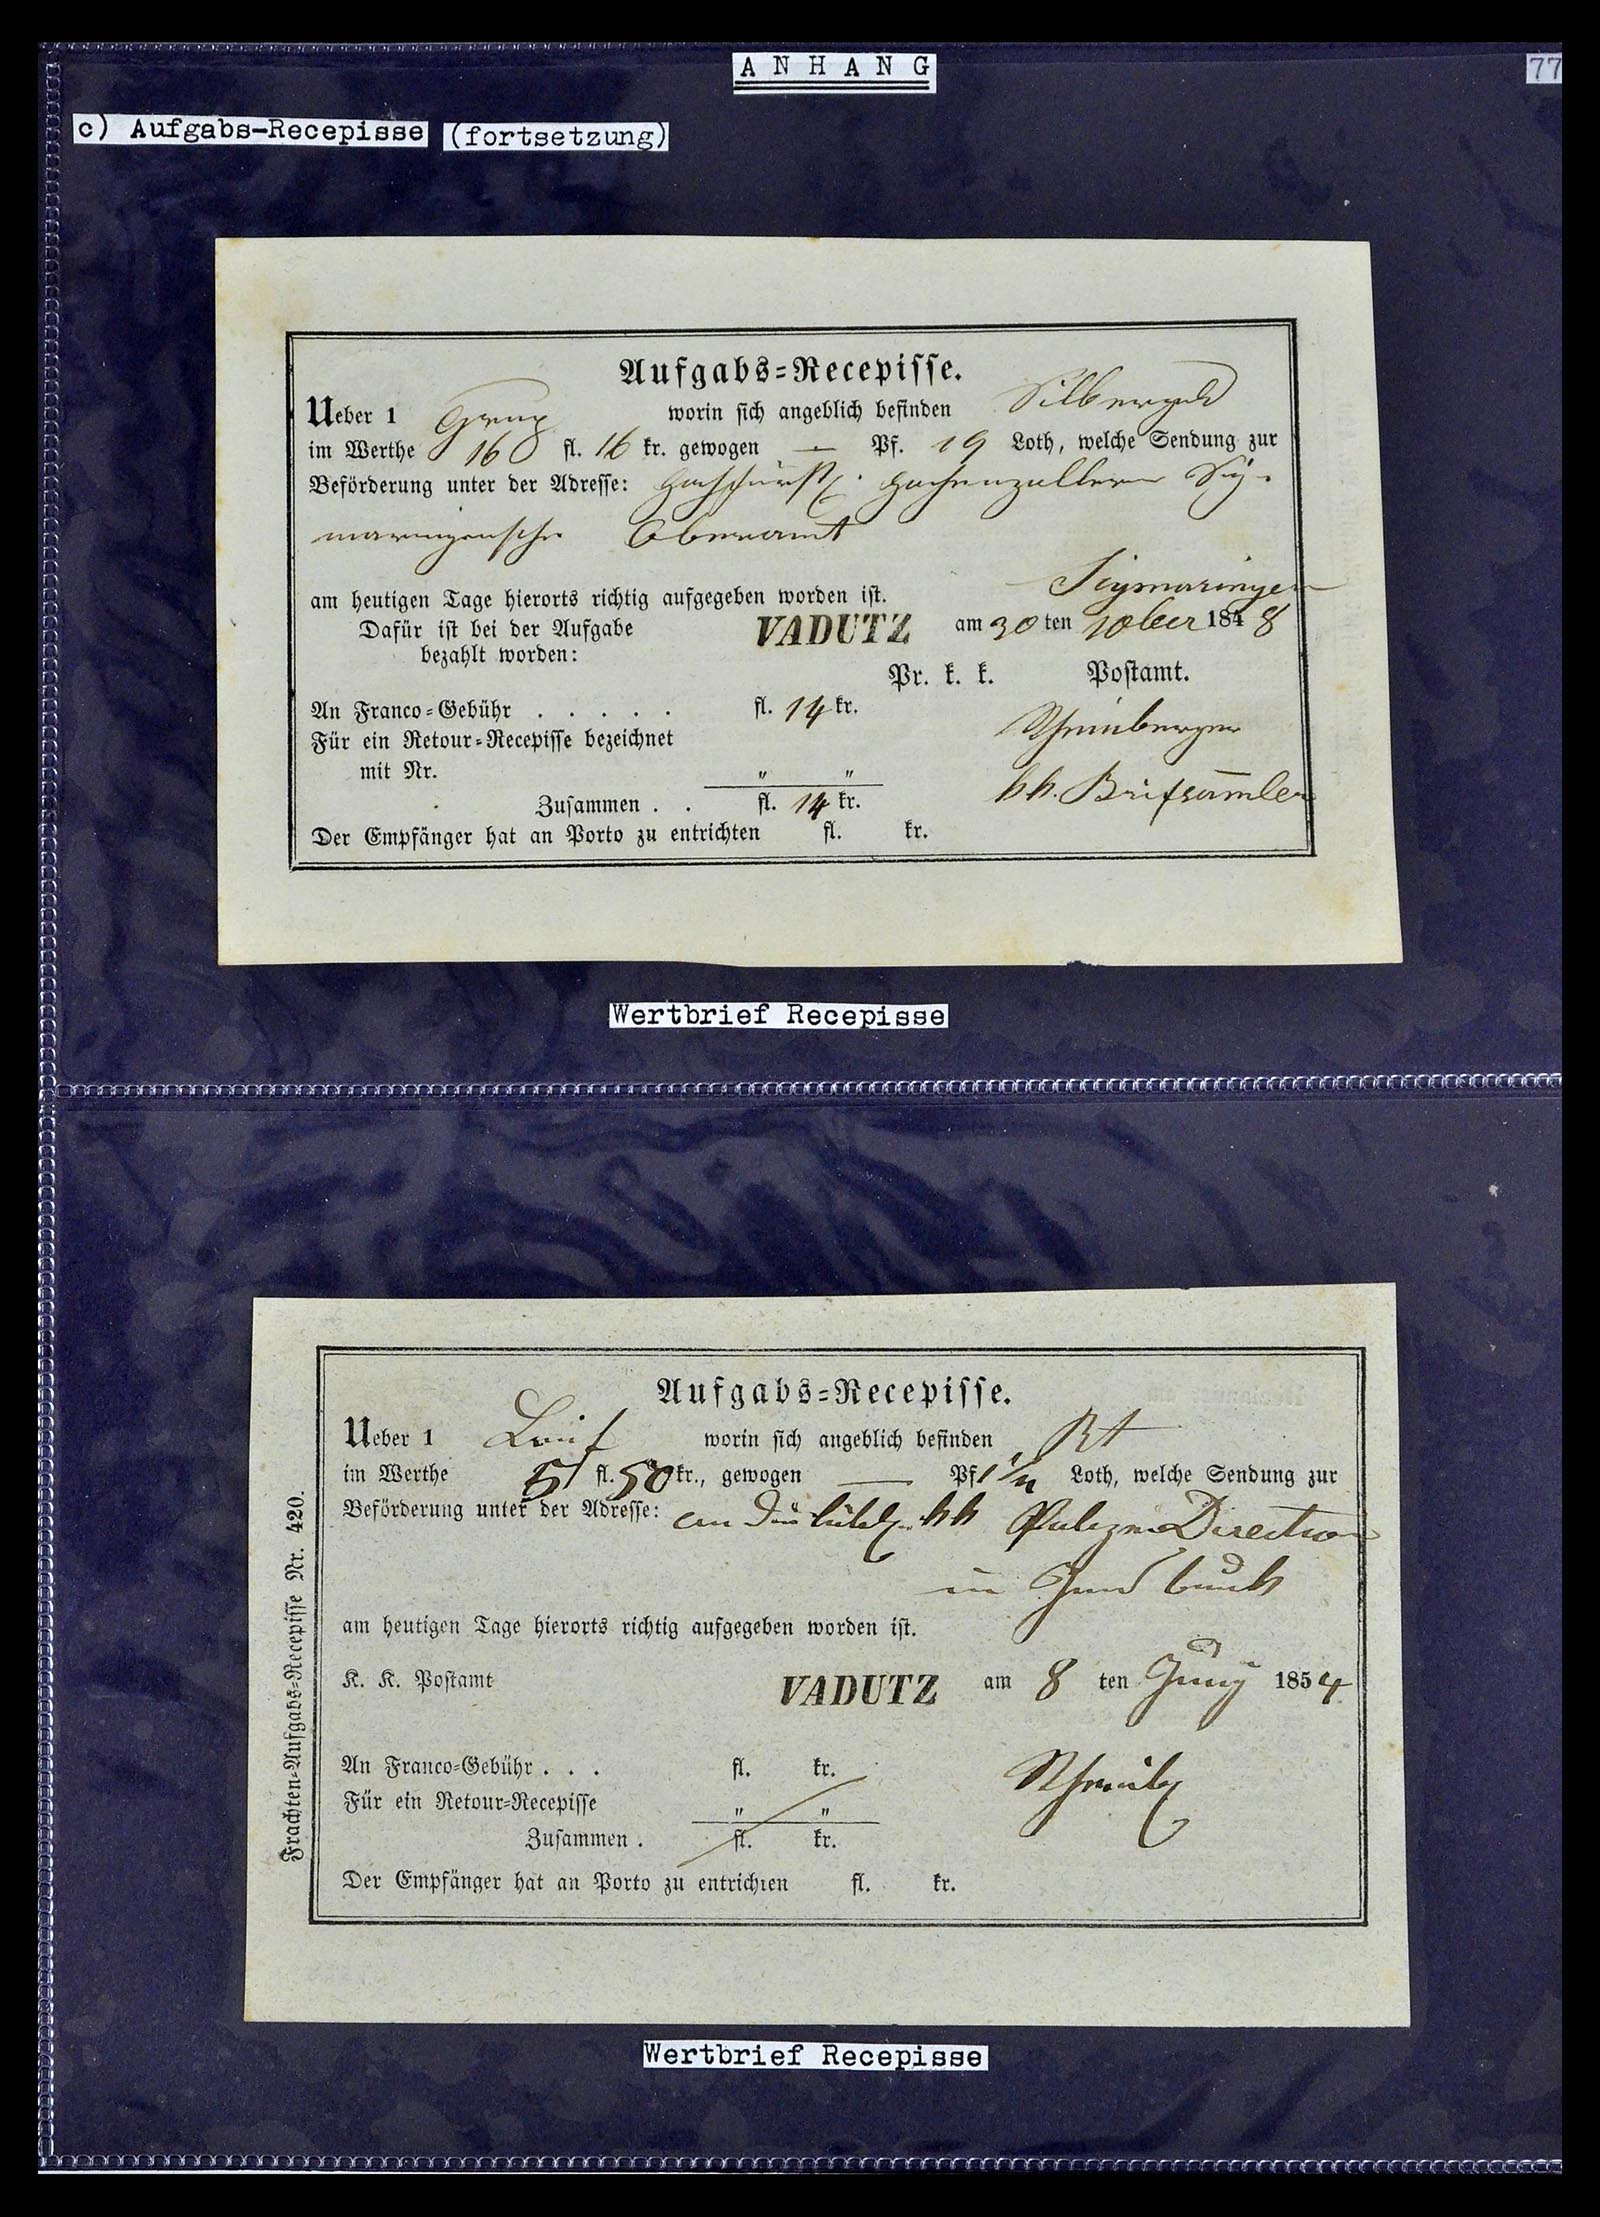 ANHANG
77
c) Aufgabs-Recepisse (fortsetzung)
Aufgabs=Recepisse.
Ueber 1 worin sich angeblich befinden Silbergeld
im Werthe 160 fl. 16 kr. gewogen — Pf. 19 Loth, welche Sendung zur
Beförderung unter der Adresse: Hochfürstl. Hochenzollern Sig-
maringensche Oberamt
Sigmaringen
am heutigen Tage hierorts richtig aufgegeben worden ist.
Dafür ist bei der Aufgabe VADUTZ am 30 ten 10ber 1848
bezahlt worden:
Pr. k. k. Postamt.
An Franco=Gebühr . . . . . fl. 14 kr.
Für ein Retour=Recepisse bezeichnet
mit Nr. " "
kk. Briefsammler
Zusammen . . fl. 14 kr.
Der Empfänger hat an Porto zu entrichten fl. kr.
Wertbrief Recepisse
Frachten=Aufgabs=Recepisse Nr. 420.
Aufgabs=Recepisse.
Ueber 1 worin sich angeblich befinden
im Werthe 51 fl. 50 kr., gewogen — Pf. Loth, welche Sendung zur
Beförderung unter der Adresse: an die löbl. kk Polizei Direction
in Innsbruck
am heutigen Tage hierorts richtig aufgegeben worden ist.
K. K. Postamt VADUTZ am 8 ten Juny 1854
An Franco=Gebühr . . . fl. kr.
Für ein Retour=Recepisse " "
Zusammen . fl. kr.
Der Empfänger hat an Porto zu entrichten fl. kr.
Wertbrief Recepisse